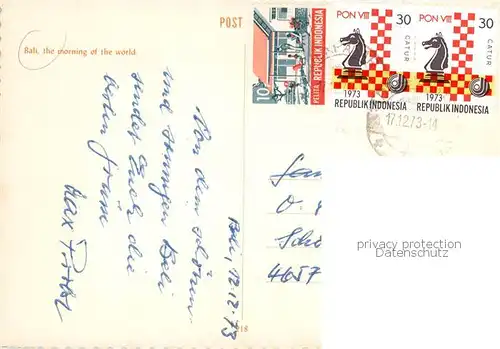 POST
Bali, the morning of the world.
10
PELITA REPUBLIK INDONESIA
PON VIII 30
CATUR
1973
REPUBLIK INDONESIA
PON VIII 30
CATUR
1973
REPUBLIK INDONESIA
17.12.73-14
Bali, 12.12.73
Von dem schönen
und sonnigen Bali
sendet Euch die
besten Grüsse
Max
4657
privacy protection
Datenschutz
218